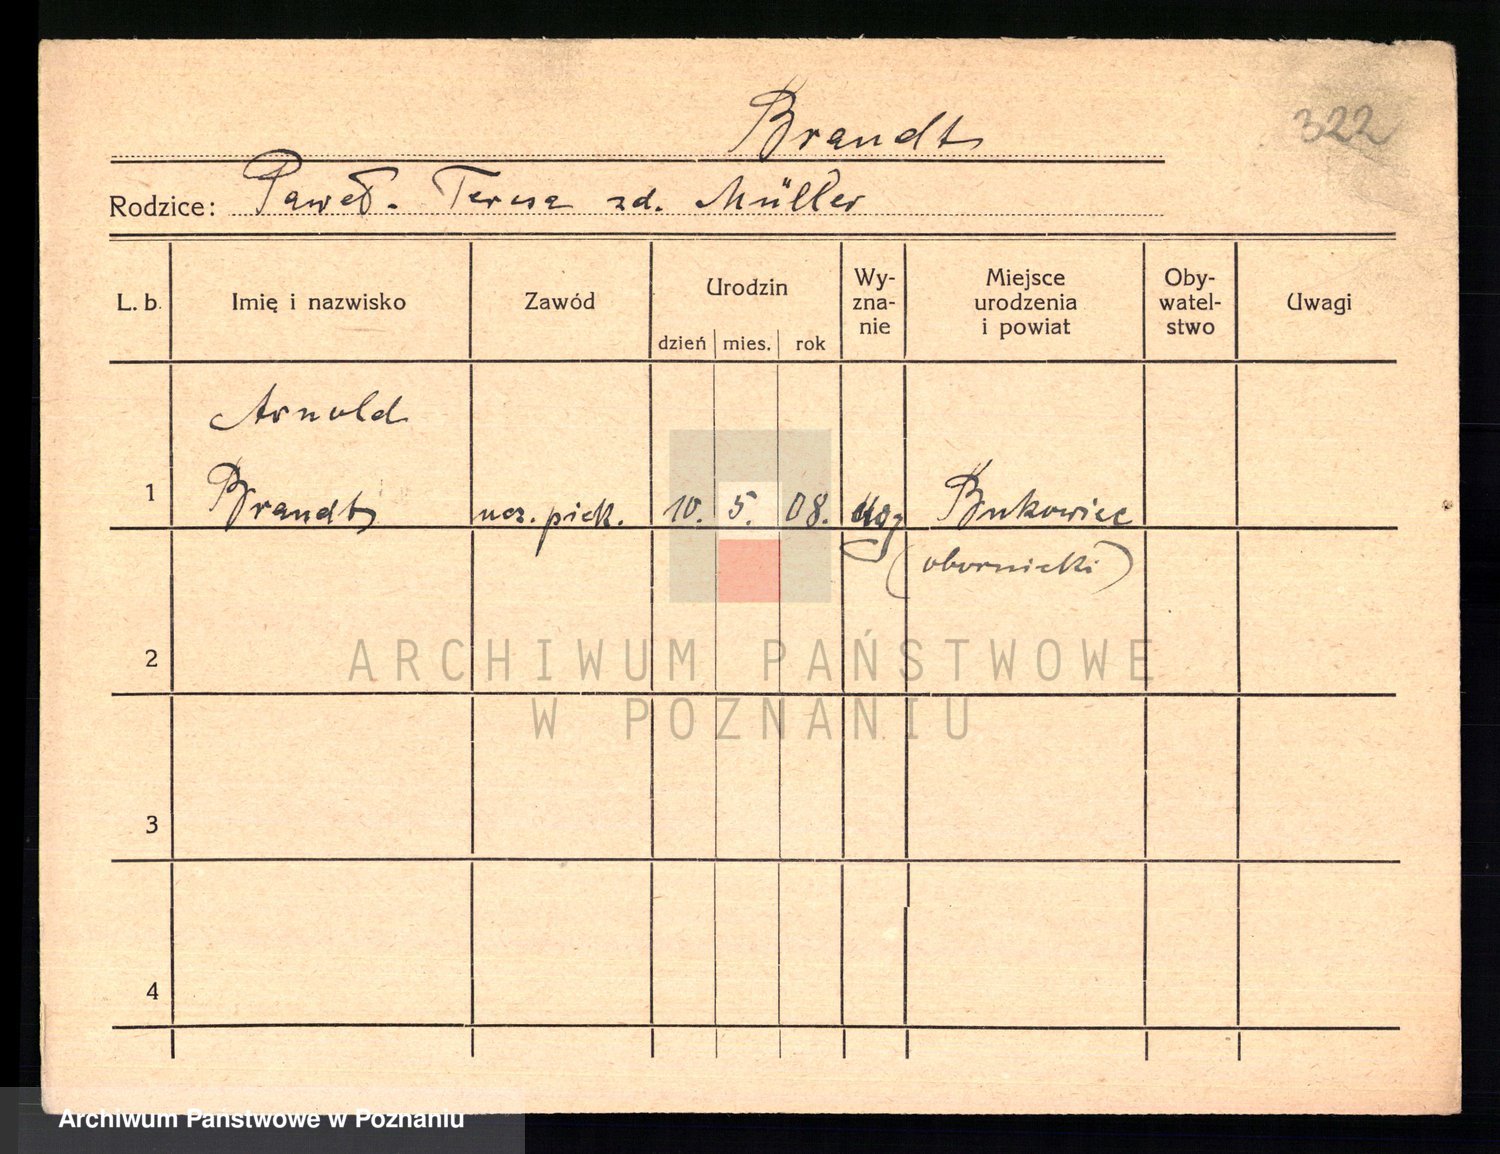 322
Brandt
Rodzice: Paweł. Teresa zd. Müller
L. b. Imię i nazwisko Zawód Urodzin Wy-zna-nie Miejsce urodzenia i powiat Oby-watel-stwo Uwagi
dzień mies. rok
Arnold
1 Brandt ucz. piek. 10. 5. 08. Bukowiec
(obornicki)
2
ARCHIWUM PAŃSTWOWE
W POZNANIU
3
4
Archiwum Państwowe w Poznaniu